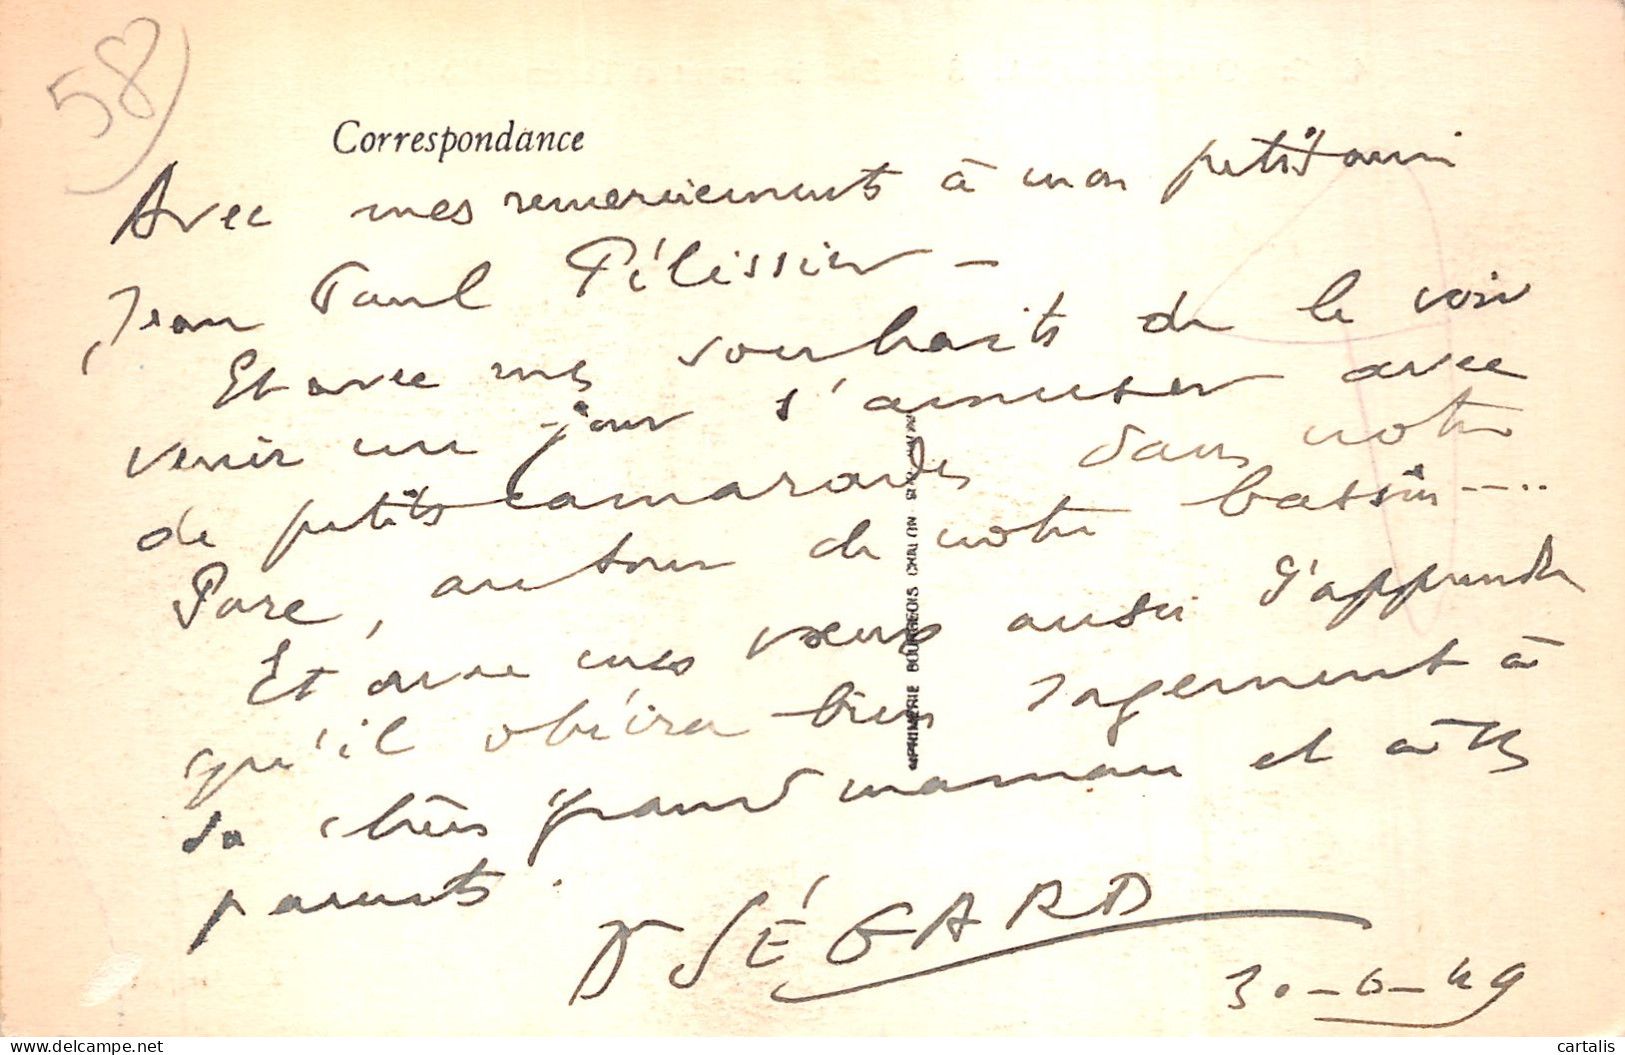 58
Correspondance
Avec mes remerciements à mon petit ami
Jean Paul Pélissier -
Et avec mes souhaits de le voir
venir un jour s'amuser avec
de petits camarades dans notre
Parc, autour de notre bassin----..
Et avec mes vœux aussi d'apprendre
qu'il obéira bien sagement à
sa chère grand maman et à ses
parents.
Dr SÉGARD
30-6-49
IMPRIMERIE BOURGEOIS CHALON
delcampe.net
cartalis